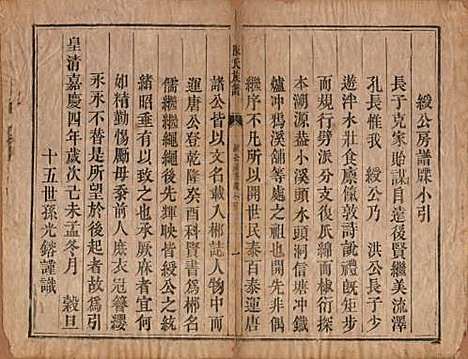 綬公房譜牒小引
長子克家貽謀自遠後賢繼美流澤
孔長惟我　綬公乃　洪公長子少
遊泮水壯食廩餼敦詩說禮既彬彬
而規行矩步復緜緜而棣衍探厥
本溯源盖小溪水頭洞信唐冲鐵
爐冲爲溪舖等處之祖也開先非偶
繼序不凡所以開世民泰百泰運唐
諸公皆以文名載入郴誌人物中而
運唐公登乾隆癸酉科賢書爲郴名
儒繼繼繩繩後先輝映皆綬公之統
緒昭垂有以啟之也承厥麻者宜何
如精勤惕厲毋忝前人庶衣冠簪纓
永永不替是所望於後起者故爲引
皇清嘉慶四年歲次己未孟冬月　穀旦
十五世孫光鎔謹識